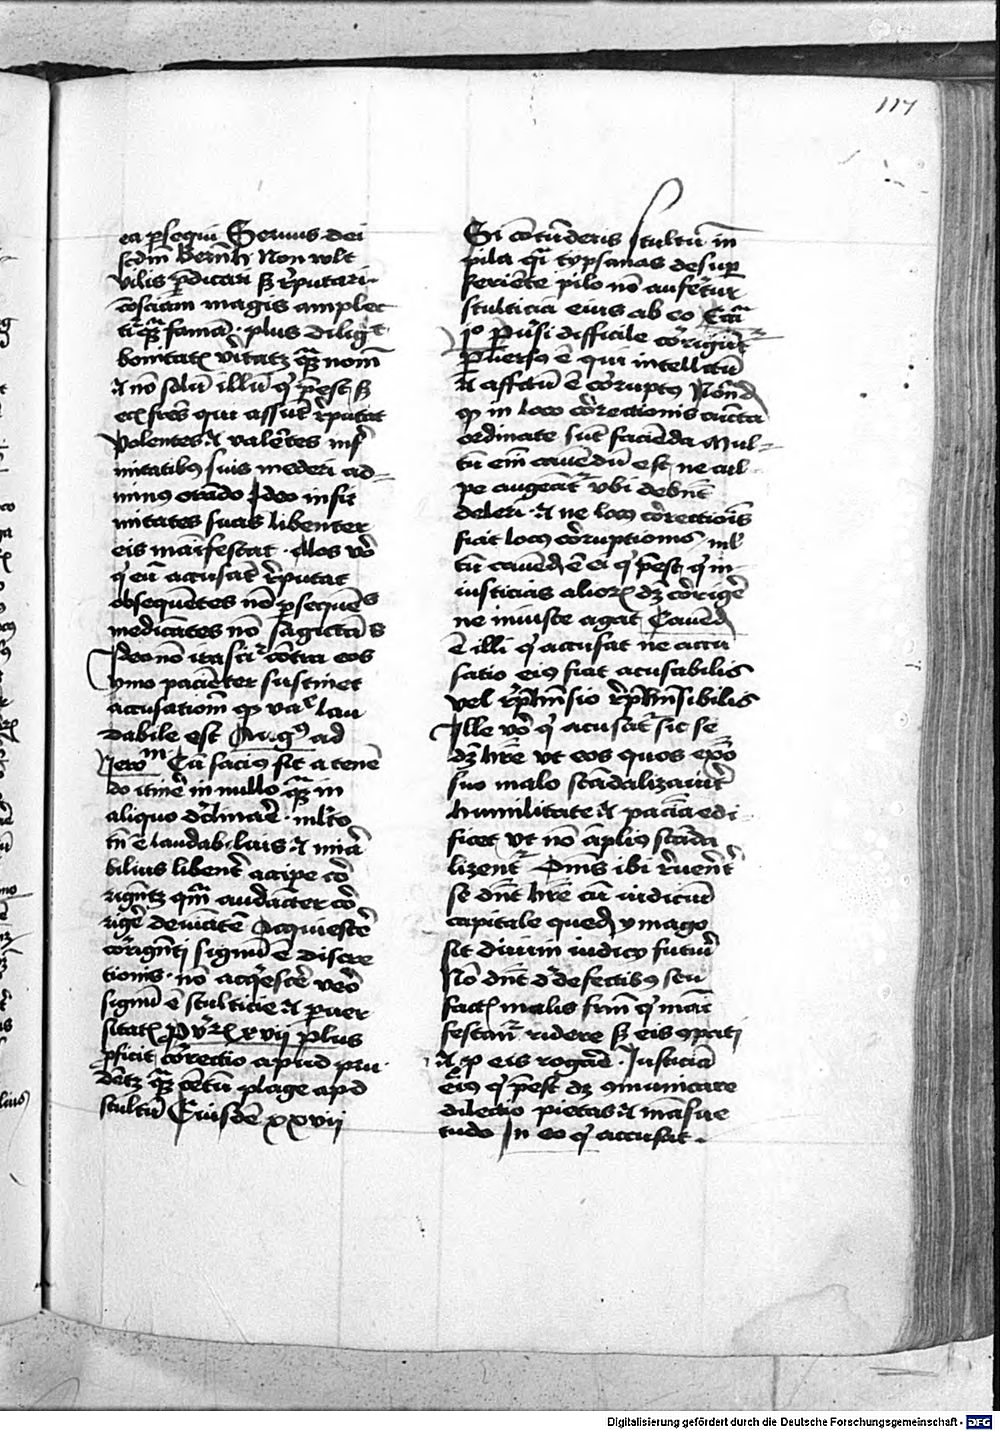 117
ea p̄sequi Seruus dei
scdm̄ Bern̄h Non wlt
vilis p̄dicari sꝫ r̄putari
cōsciām magis amplec
tit̉ qᷓꝫ famā · plus dilig̅t
bonitatē v̄itatꝫ qᷓꝫ nom̄
⁊ nō solū illū q̇ p̄est sꝫ
ecī fr̄es qui assūt r̄putat
volentes ⁊ valētes inf̉
mitatibꝰ suis mederi ad
minꝰ orādo Ideo infir
mitates suas libenter
eis maīfestat · Alos v̊o
q̇ eū accusāt r̄putat
obsequētes nō p̄sequēs
medicātes nō sagittās
Ideo nō irascit̉ cōtra eos
ymo paciēter sustinet
accusatiōm qꝫ lau
dabile est Augꝰ ad
Jero^m Cū faciꝰ sit a tene
do itin̄e in nullo qᷓꝫ in
aliquo d̄clinar̄e · ml̄to
tn̄ ē laudab̄lius ⁊ mirā
bilius libent̄ accipe cor̄
rign̄tꝫ qm̄ audacter cor̄
rigē deuiatē Acquiescē
corrign̄ti signū ē discre
tionis · nō acq̇escē vero
signū ē stulticie ⁊ puer
sitatꝫ Pv̄z xvii Plus
ꝓficit correctio apud pru
dētꝫ qᷓꝫ cētū plage apd
stultū Eiusdē xxvii
Si cōtūderis stultū in
pila qᷓi typsanas desup
feriēte pilo nō aufer̄tur
stulticia eius ab eo
Io pūsi difficile corrigūt̉
Puersꝰ ē qui intellectū
⁊ affctū ē corruptꝰ Notād
qꝫ in loco correctionis cūcta
ordinate sūt faciēda Mul
tū em̄ cauēdū est ne cul
pe augeāt̉ vbi debn̄t
deleri · ⁊ ne locꝰ correctiōis
fiat locꝰ corruptionis ml̄
tū cauēdū ē ei q̇ p̄est q̇ in
iusticias aliorꝫ dꝫ corrigē
ne iniuste agat Cauēdū
ē illi q̇ accusat ne accu
satio eiꝰ fiat acusabilis
vel r̄p̄hn̄sio r̄p̄hn̄sibilis
Ille v̊o q̇ acusat̉ sic se
dꝫ hr̄e vt eos quos ex̄o
suo malo scādalizauit
humilitate ⁊ paciā edi
ficet vt nō āpliꝰ scāda
lizent̉ Om̄s ibi r̄uēnt̉
se dn̄t hr̄e cū iudiciū
capitale quedā ymago
sit diuini iudicij futuri
Nō dn̄t d̄ defectibꝰ seu
factꝫ malis frm̄ q̇ mai
festant̉ ridere sꝫ eis ꝯpati
⁊ ꝓ eis rogāe Iusticiā
eiꝰ q̇ p̄est dꝫ ꝯmunicare
dilectio pietas ⁊ māsue
tudo In eo q̇ accusat
Digitalisierung gefördert durch die Deutsche Forschungsgemeinschaft - DFG